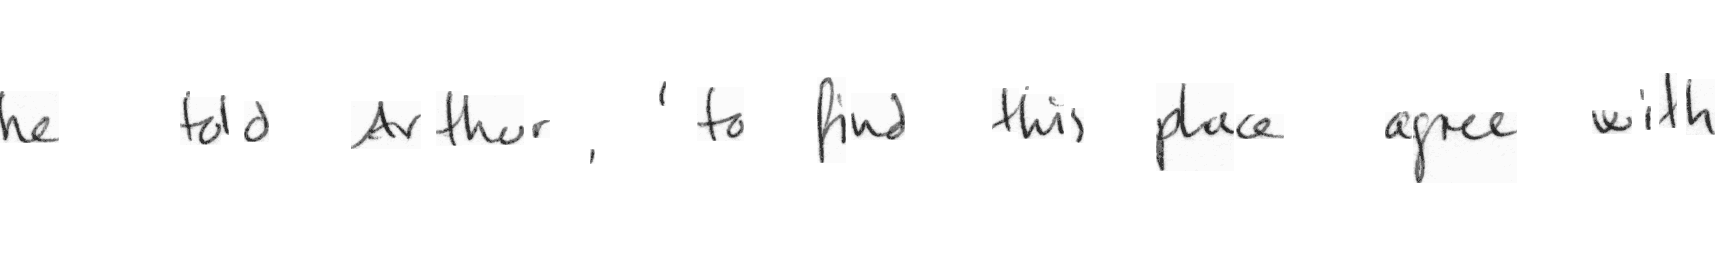 he told Arthur, 'to find this place agree with